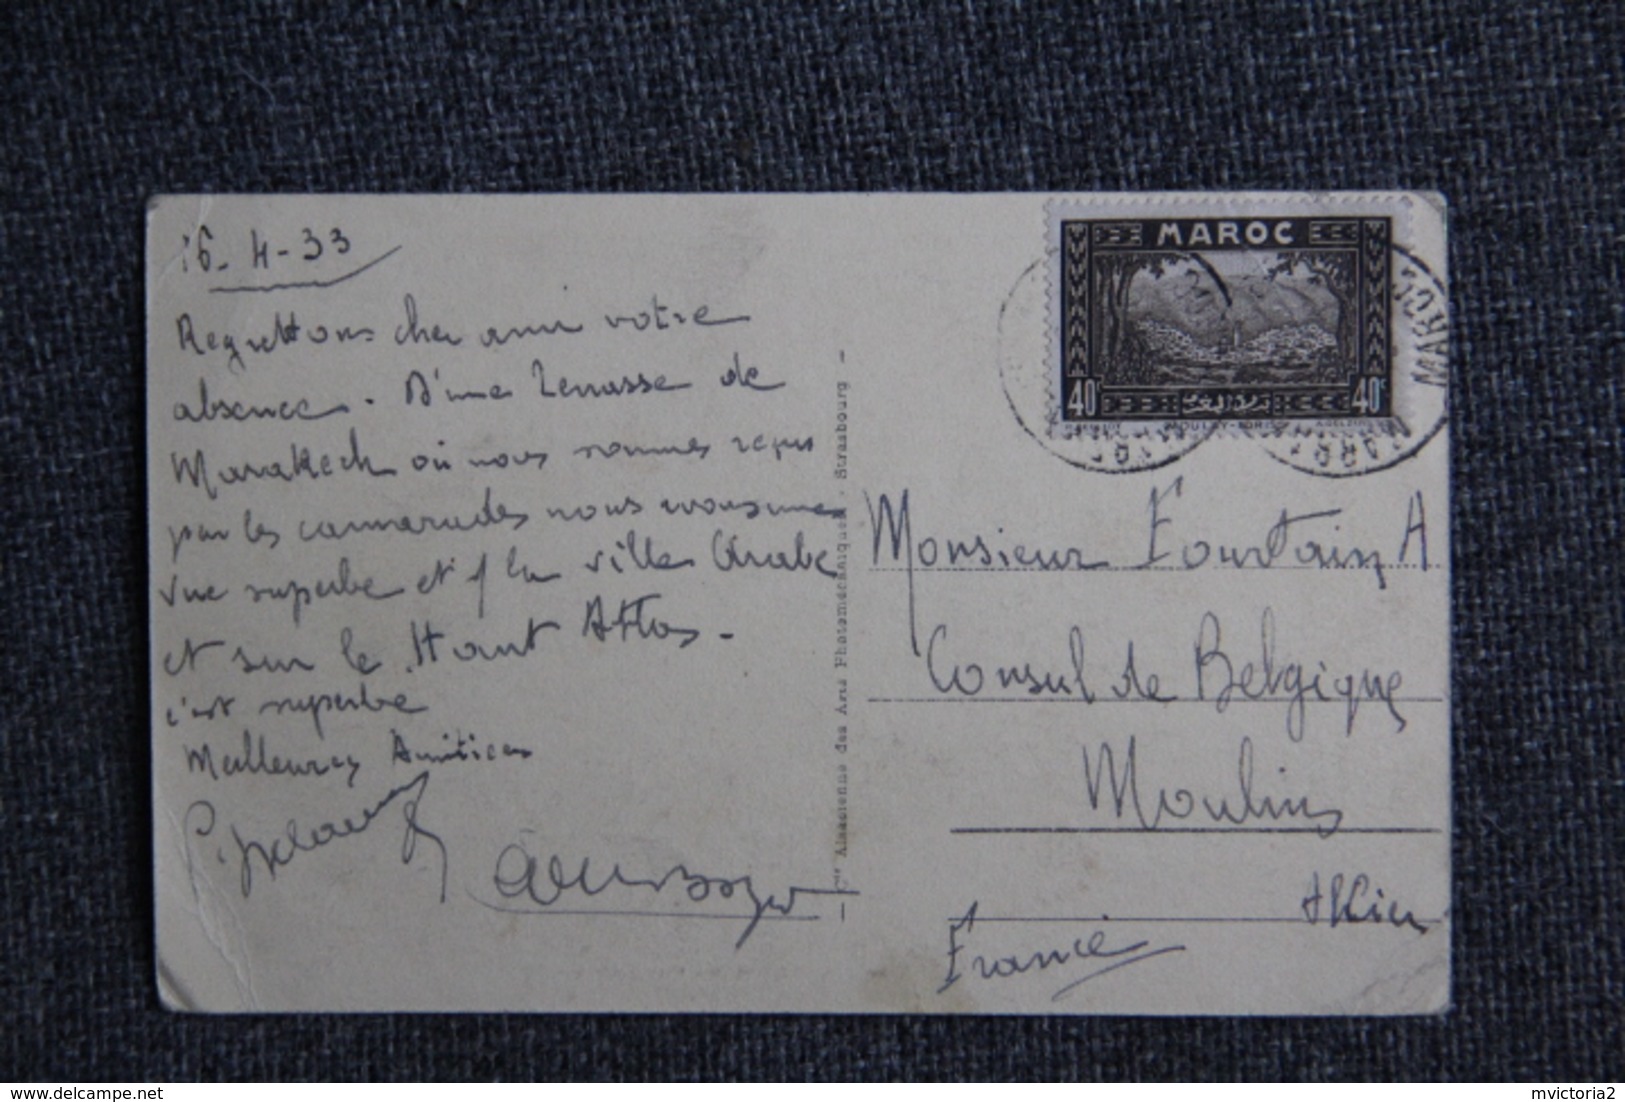 16-4-33
Regrettons cher ami votre
absence. D'une terrasse de
Marakech où nous sommes reçus
par les camarades nous avons une
vue superbe et / la ville Arabe
et sur le Haut Atlas.
c'est superbe
Meilleures Amitiés
Cie Alsacienne des Arts Photomécaniques - Strasbourg
MAROC
40c
40c
MOULAY-IDRISS
MARRAKECH
MAROC
Monsieur Fourtain A
Consul de Belgique
Moulins
Allier
France
delcampe.net
mvictoria2